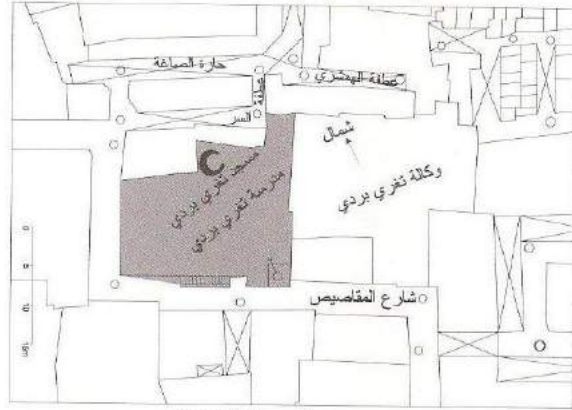 حارة الصاغة
عطفة
السر
عطفة الهمشري
شمال
مسجد تغري بردي
مدرسة تغري بردي
وكالة تغري بردي
شارع المقاصيص